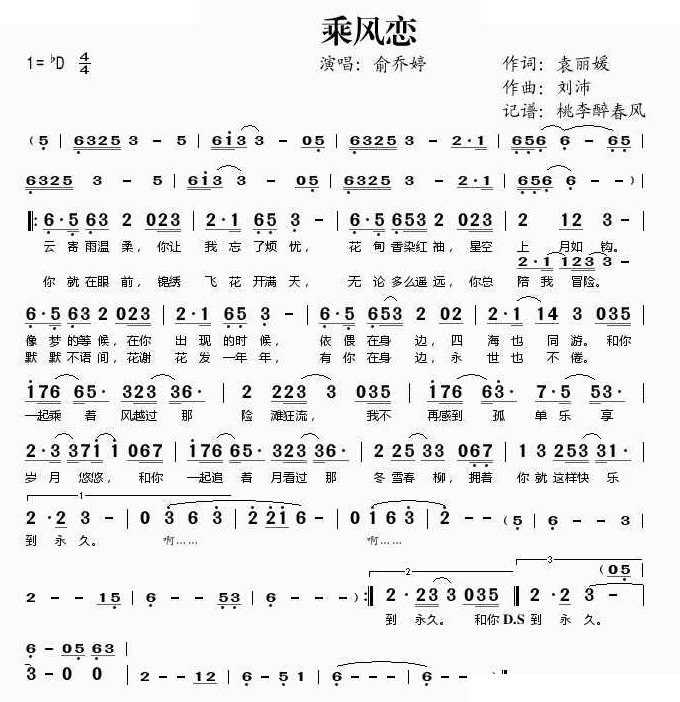 乘风恋
1= ♭D 4/4 演唱：俞乔婷 作词：袁丽媛
作曲：刘沛
记谱：桃李醉春风
(5 | 6325 3 - 5 | 613 3 - 05 | 6325 3 - 2·1 | 656 6 - 65 |
6325 3 - 5 | 613 3 - 05 | 6325 3 - 2·1 | 656 6 - -) |
‖: 6·5 63 2 023 | 2·1 65 3 - | 6·5 653 2 023 | 2 12 3 - |
云寄雨温柔，你让 我忘了烦忧， 花甸香染红袖，星空 上月如钩。
2·1 123 3 -
你就在眼前，锦绣 飞花开满天， 无论多么遥远，你总 陪我 冒险。
6·5 63 2 023 | 2·1 65 2 - | 6·5 653 2 023 | 2·1 14 3 035 |
像梦的等候，在你 出现的时候， 依偎在身边，四 海也同游。和你
默默不语间，花谢 花发一年年， 有你在身边，永 世也不倦。
176 65· 323 36· | 2 223 3 035 | 176 63· 7·5 53· |
一起乘着 风越过那 险滩狂流， 我不 再感到孤单乐享
2·3 371 1 067 | 176 65· 323 36· | 2 25 33 067 | 1 3 253 31· |
岁月悠悠， 和你 一起追着月看过那 冬雪春柳，拥着 你就这样快乐
1
2·2 3 - | 0 3 6 3 | 2 221 6 - | 0 1 6 3 | 2 - - (5 | 6 - - 3 |
到永久。 啊…… 啊……
2 3 (05 |
2 - - 15 | 6 - - 53 | 6 - - -) :‖ 2·23 3 035 ‖ 2·2 3 - |
到永久。 和你 D.S 到永久。
6 - 05 63 |
3 - 0 0 | 2 - - 12 | 6 - 51 | 6 - - - | 6 - -